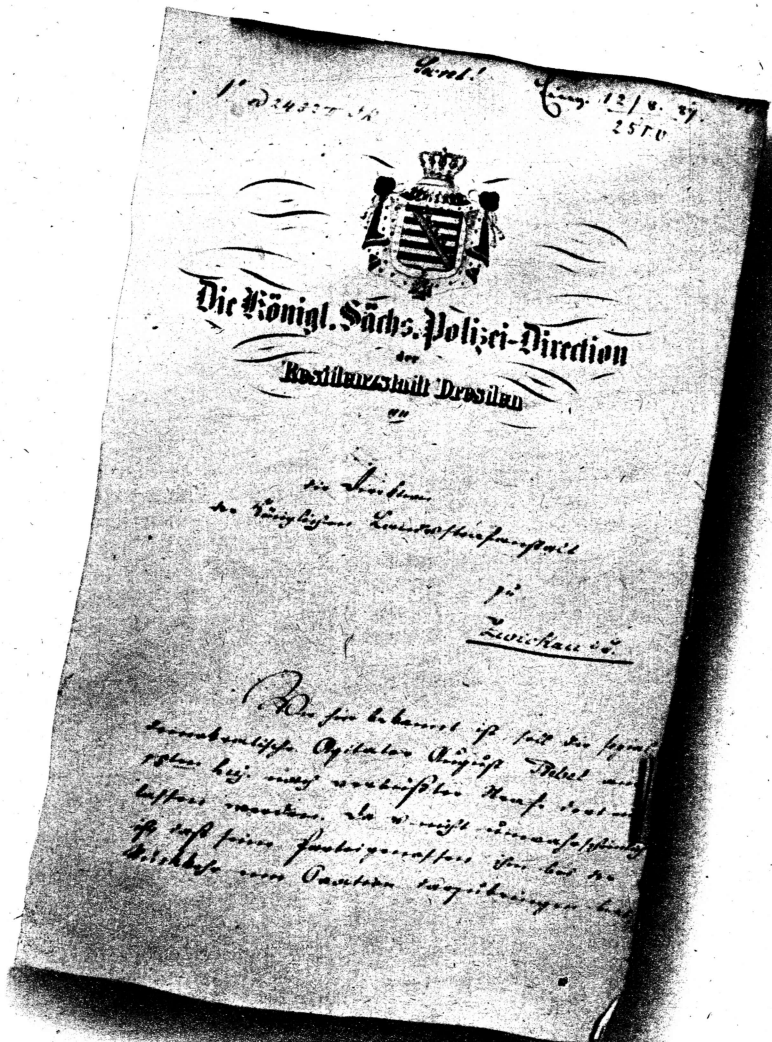 Secret!
Eing. 12/8. 87.
2550
Die Königl. Sächs. Polizei-Direction
der
Residenzstadt Dresden
an
die Direktion
der Königlichen Landesstrafanstalt
zu
Zwickau i/S.
Wie hier bekannt ist, soll der sozial-
demokratische Agitator August Bebel am
ds. nach verbüßter Strafe dort ent-
lassen werden. Da es nicht unwahrscheinlich
ist, daß seine Parteigenossen ihm bei der
Rückkehr eine Ovation darzubringen